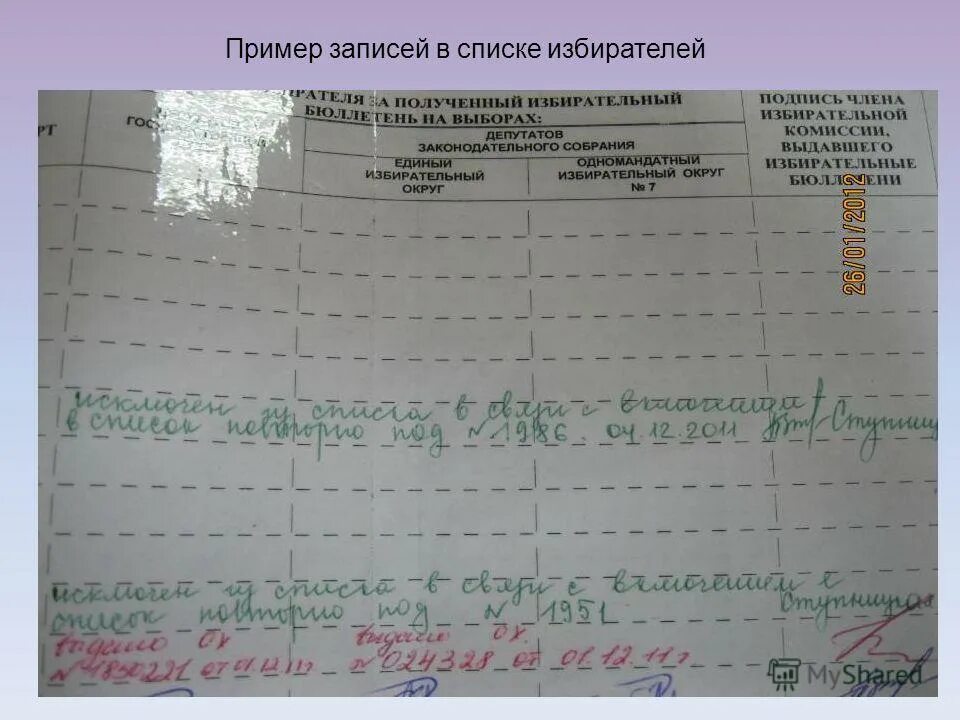 Пример записей в списке избирателей
ИРАТЕЛЯ ЗА ПОЛУЧЕННЫЙ ИЗБИРАТЕЛЬНЫЙ
БЮЛЛЕТЕНЬ НА ВЫБОРАХ:
ДЕПУТАТОВ
ЗАКОНОДАТЕЛЬНОГО СОБРАНИЯ
ЕДИНЫЙ
ИЗБИРАТЕЛЬНЫЙ
ОКРУГ
ОДНОМАНДАТНЫЙ
ИЗБИРАТЕЛЬНЫЙ ОКРУГ
№ 7
ПОДПИСЬ ЧЛЕНА
ИЗБИРАТЕЛЬНОЙ
КОМИССИИ,
ВЫДАВШЕГО
ИЗБИРАТЕЛЬНЫЕ
БЮЛЛЕТЕНИ
РТ
ГОС
26/01/2012
исключен из списка в связи с включением
в список повторно под №1986 04.12.2011 Ступниц
исключен из списка в связи с включением в
список повторно под № 1951 Ступницкая
выдано ОУ выдано ОУ
№ 4850221 от 01.12.11г №024328 от 01.12.11г
MyShared